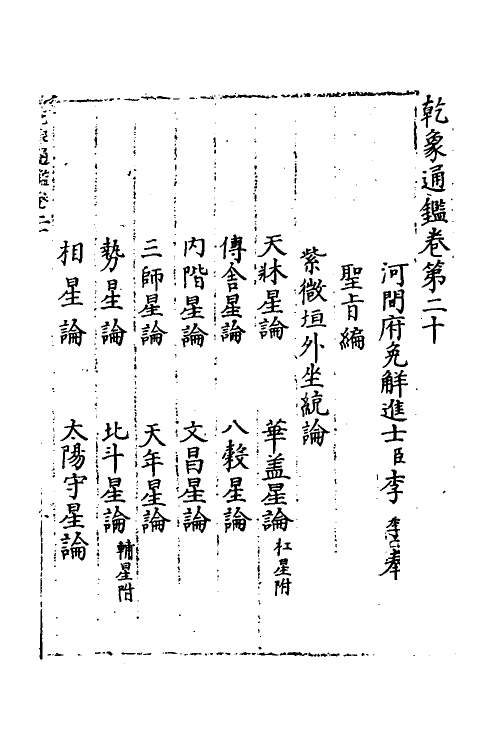 乾象通鑑卷第二十
河間府免解進士臣李季奉
聖旨編
紫微垣外坐統論
天牀星論 華盖星論杠星附
傳舍星論 八穀星論
内階星論 文昌星論
三師星論 天年星論
勢星論 北斗星論輔星附
相星論 太陽守星論